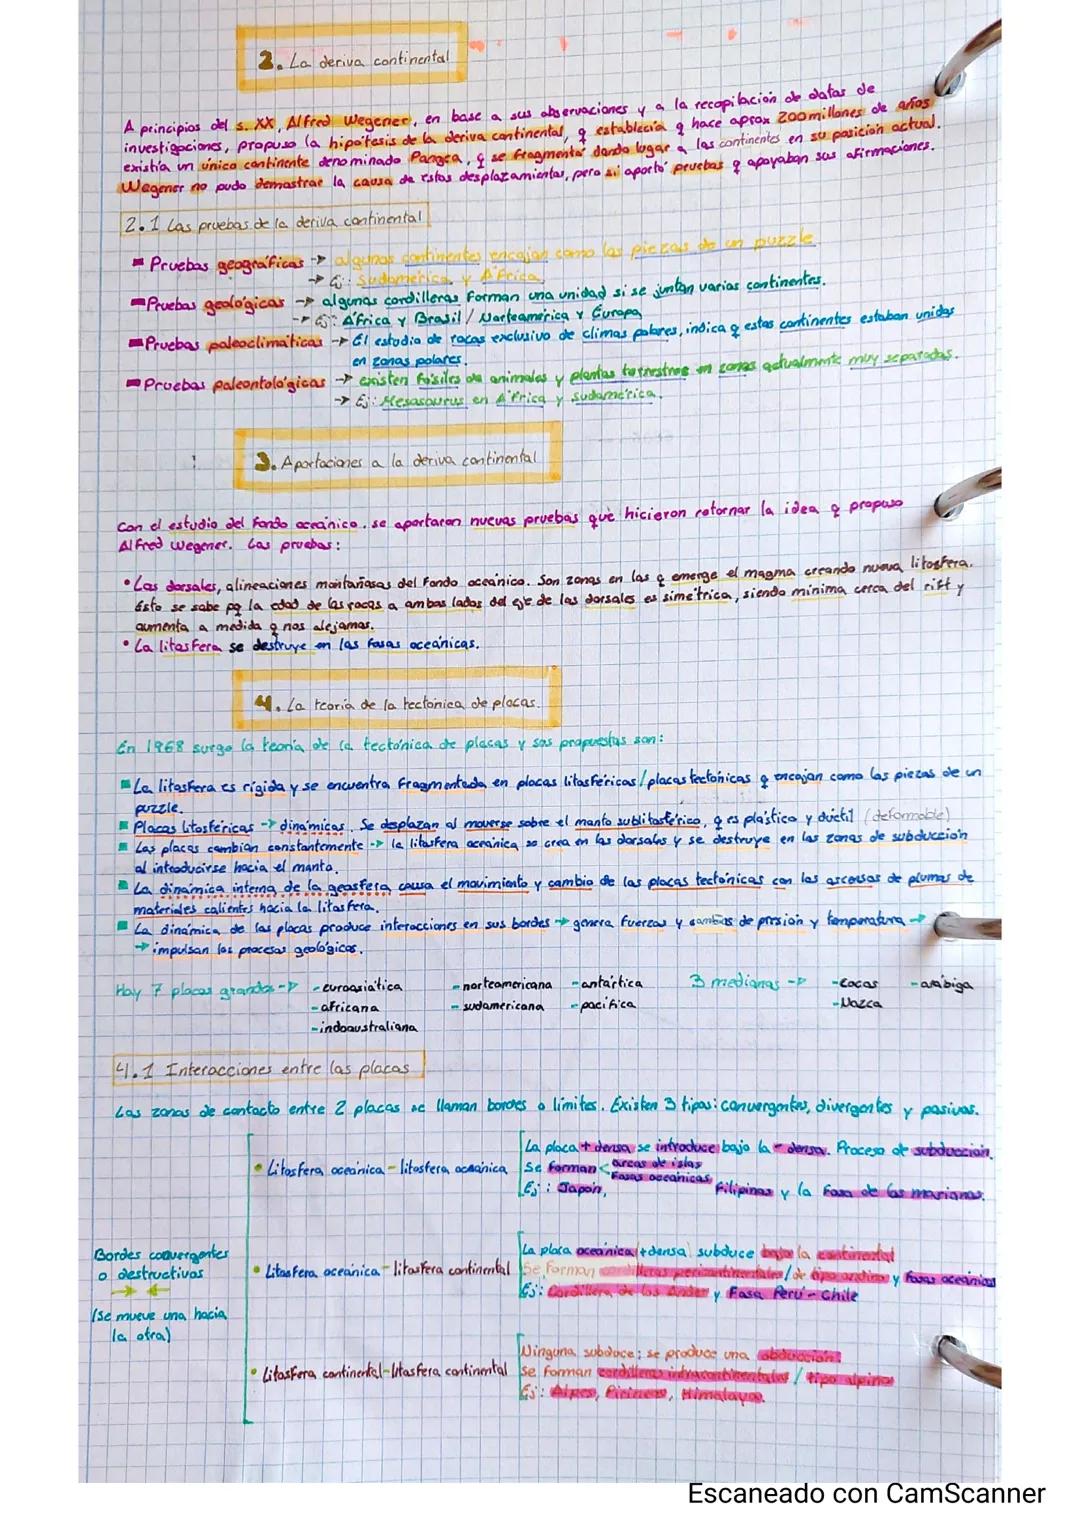 2. La deriva continental
A principios del s. XX, Alfred Wegener, en base a sus observaciones y a la recopilación de datos de
investigaciones, propuso la hipótesis de la deriva continental, q establecía q hace aprox 200 millones de años
existía un único continente denominado Pangea, q se fragmentó dando lugar a los continentes en su posición actual.
Wegener no pudo demostrar la causa de estos desplazamientos, pero sí aportó pruebas q apoyaban sus afirmaciones.
2.1 Las pruebas de la deriva continental
Pruebas geográficas → algunos continentes encajan como las piezas de un puzzle
→ Ej: Sudamérica y África
Pruebas geológicas → algunas cordilleras forman una unidad si se juntan varios continentes.
→ Ej: África y Brasil / Norteamérica y Europa
Pruebas paleoclimáticas → El estudio de rocas exclusivo de climas polares, indica q estos continentes estaban unidos
en zonas polares.
Pruebas paleontológicas → existen fósiles de animales y plantas terrestres en zonas actualmente muy separadas.
→ Ej: Mesosaurus en África y Sudamérica.
3. Aportaciones a la deriva continental
Con el estudio del fondo oceánico, se aportaron nuevas pruebas que hicieron retornar la idea q propuso
Alfred Wegener. Las pruebas:
• Las dorsales, alineaciones montañosas del fondo oceánico. Son zonas en las q emerge el magma creando nueva litosfera.
Esto se sabe pq la edad de las rocas a ambos lados del eje de las dorsales es simétrica, siendo mínima cerca del rift y
aumenta a medida q nos alejamos.
• La litosfera se destruye en las fosas oceánicas.
4. La teoría de la tectónica de placas.
En 1968 surge la teoría de la tectónica de placas y sus propuestas son:
La litosfera es rígida y se encuentra fragmentada en placas litosféricas/placas tectónicas q encajan como las piezas de un
puzzle.
Placas litosféricas → dinámicas. Se desplazan al moverse sobre el manto sublitosférico, q es plástico y dúctil (deformable)
Las placas cambian constantemente → la litosfera oceánica se crea en las dorsales y se destruye en las zonas de subducción
al introducirse hacia el manto.
La dinámica interna de la geosfera causa el movimiento y cambio de las placas tectónicas con los ascensos de plumas de
materiales calientes hacia la litosfera.
La dinámica de las placas produce interacciones en sus bordes → genera fuerzas y cambios de presión y temperatura →
→ impulsan los procesos geológicos.
Hay 7 placas grandes → - euroasiática - norteamericana - antártica 3 medianas → - Cocos - arábiga
- africana - sudamericana - pacífica - Nazca
- indoaustraliana
4.1 Interacciones entre las placas
Las zonas de contacto entre 2 placas se llaman bordes o límites. Existen 3 tipos: convergentes, divergentes y pasivos.
Bordes convergentes
o destructivos
→ ←
(Se mueve una hacia
la otra)
• Litosfera oceánica - litosfera oceánica
La placa + densa se introduce bajo la - densa. Proceso de subducción.
Se forman < arcos de islas
fosas oceánicas
Ej: Japón, Filipinas y la fosa de las marianas.
• Litosfera oceánica - litosfera continental
La placa oceánica (+densa) subduce bajo la continental
Se forman cordilleras pericontinentales / de tipo andino y fosas oceánicas
Ej: Cordillera de los Andes y Fosa Perú - Chile
• Litosfera continental - litosfera continental
Ninguna subduce; se produce una obducción.
Se forman cordilleras intracontinentales / tipo alpino
Ej: Alpes, Pirineos, Himalaya.
Escaneado con CamScanner